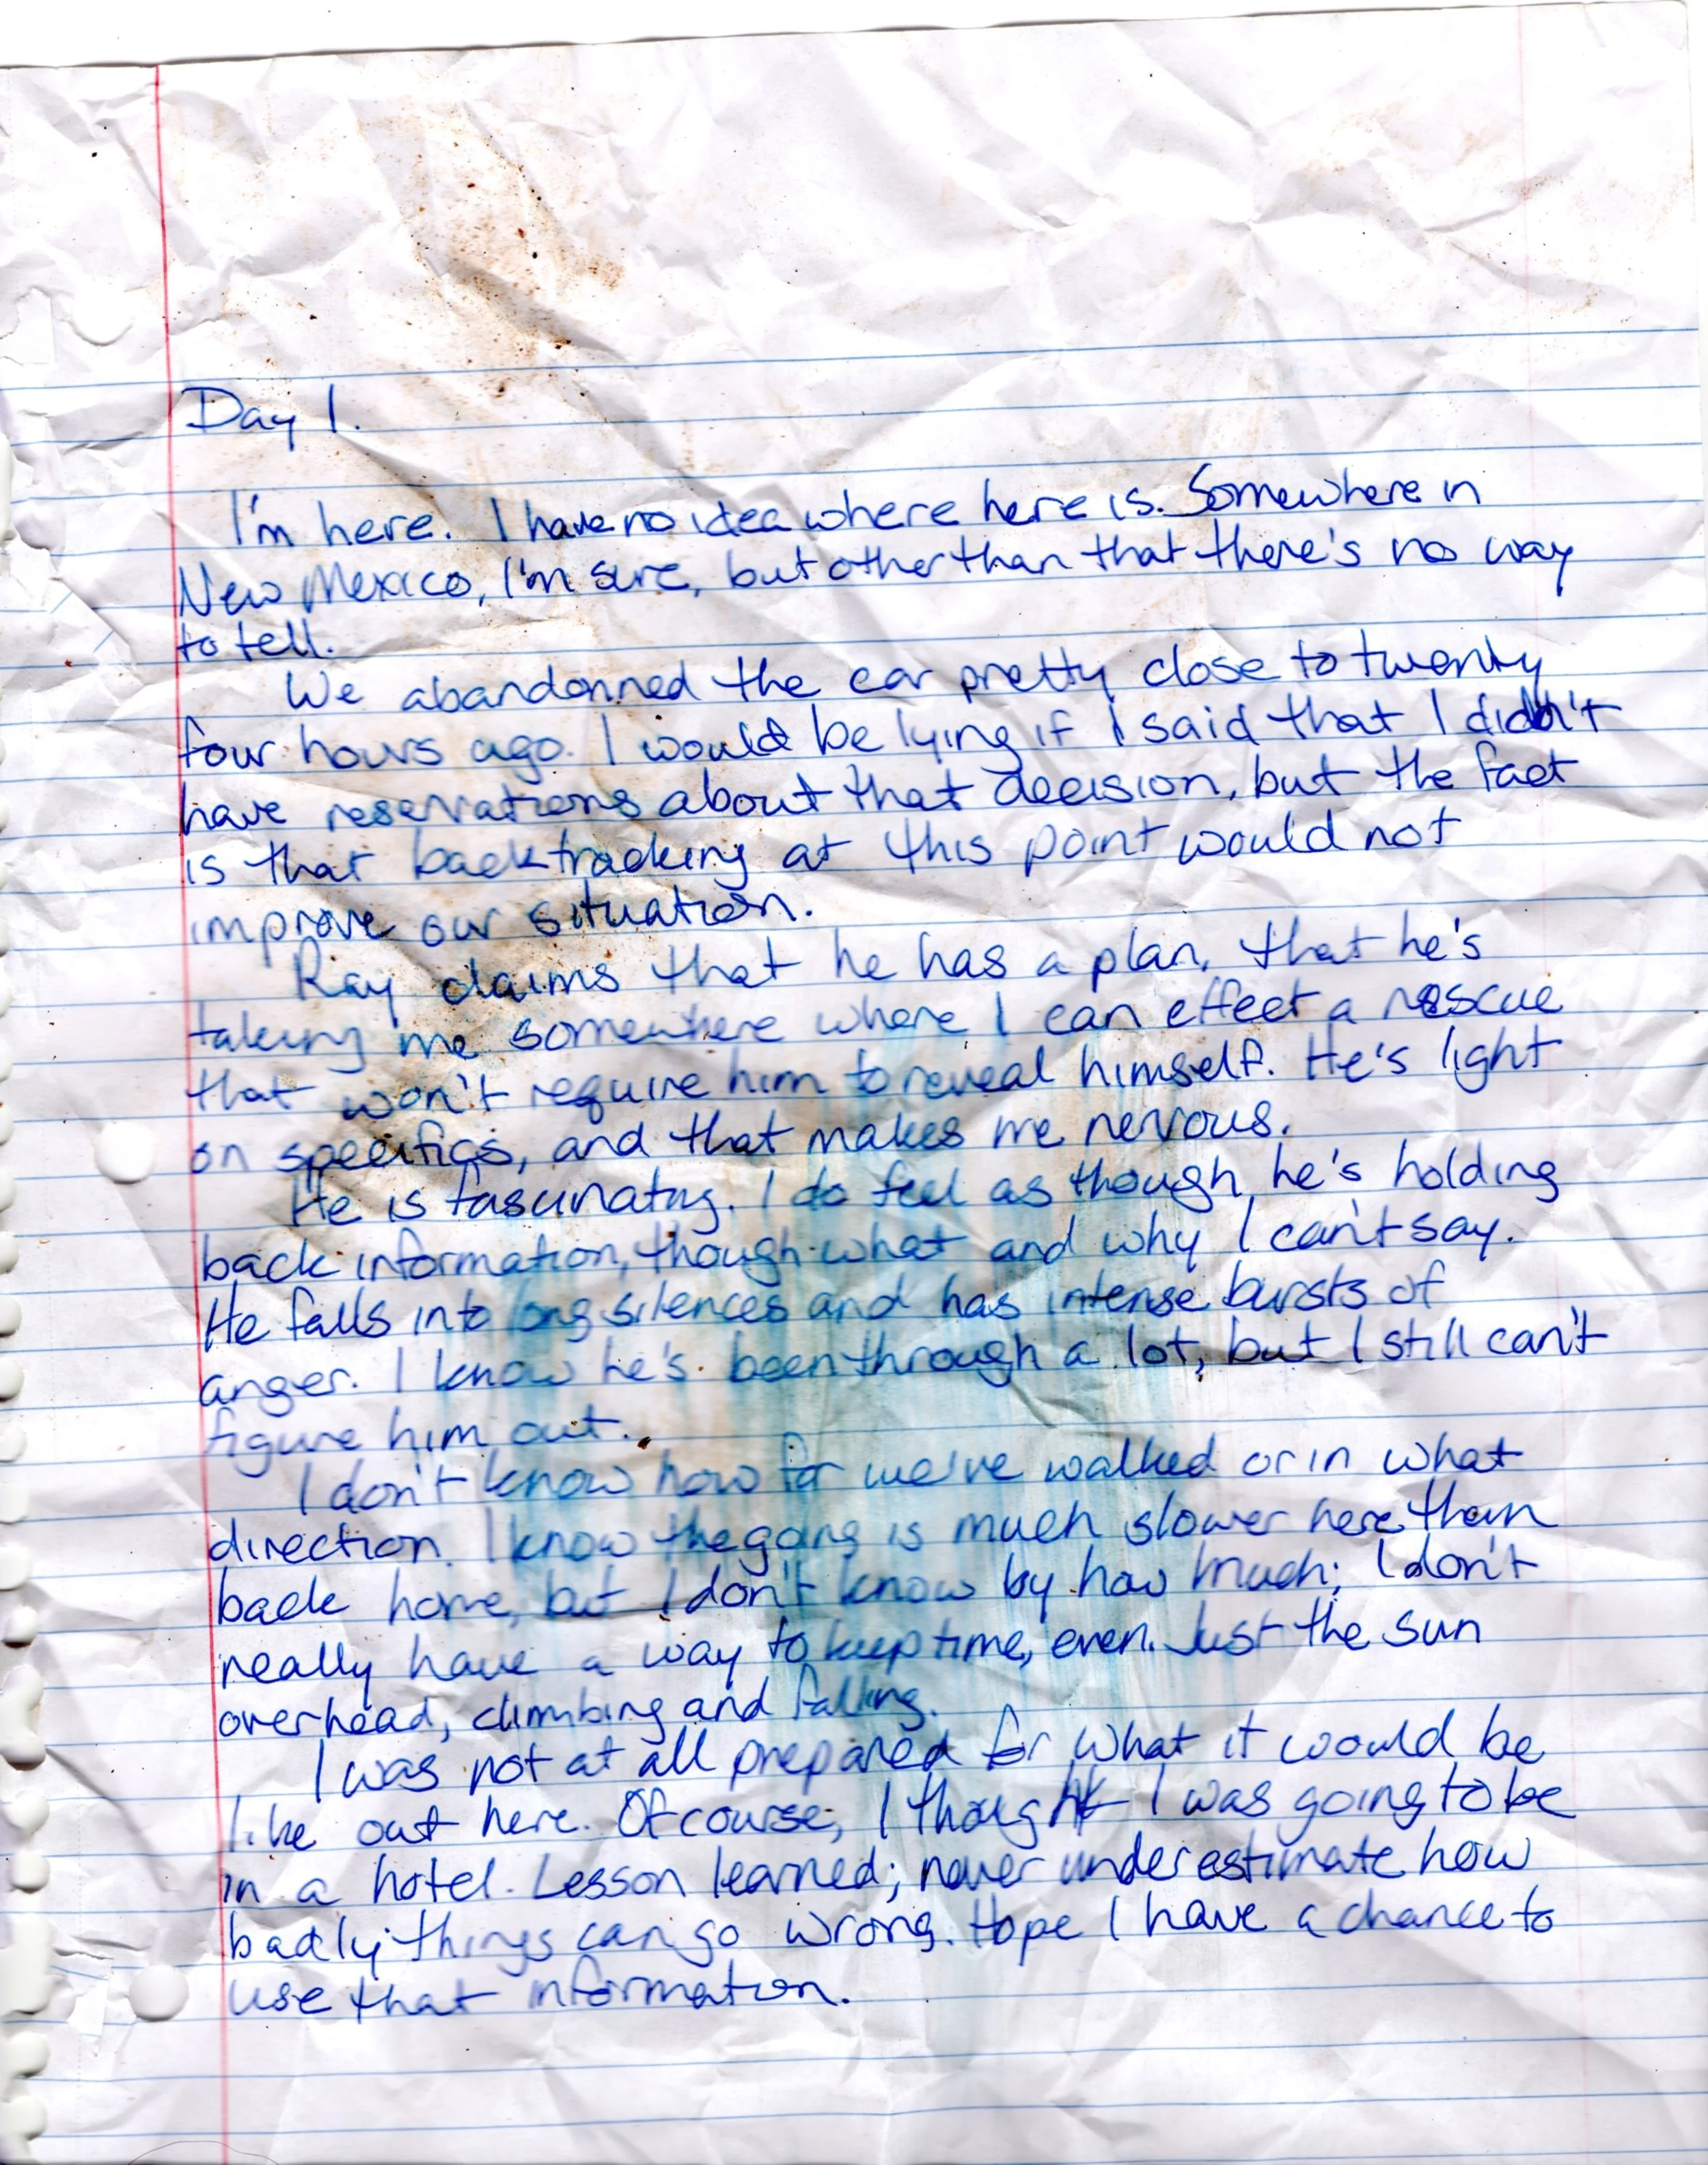 Day 1.
I'm here. I have no idea where here is. Somewhere in
New Mexico, I'm sure, but other than that there's no way
to tell.
We abandonned the car pretty close to twenty
four hours ago. I would be lying if I said that I didn't
have reservations about that decision, but the fact
is that backtracking at this point would not
improve our situation.
Ray claims that he has a plan, that he's
taking me somewhere where I can effect a rescue
that won't require him to reveal himself. He's light
on specifics, and that makes me nervous.
He is fascinating. I do feel as though he's holding
back information, though what and why I can't say.
He falls into long silences and has intense bursts of
anger. I know he's been through a lot, but I still can't
figure him out.
I don't know how far we've walked or in what
direction. I know the going is much slower here than
back home, but I don't know by how much; I don't
really have a way to keep time, even. Just the sun
overhead, climbing and falling.
I was not at all prepared for what it would be
like out here. Of course, I thought I was going to be
in a hotel. Lesson learned; never underestimate how
badly things can go wrong. Hope I have a chance to
use that information.